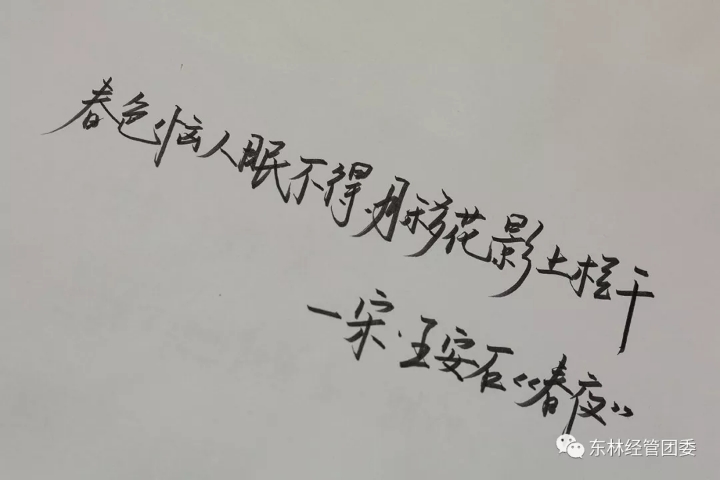 春色恼人眠不得.月移花影上栏干
一宋·王安石《春夜》
东林经管团委